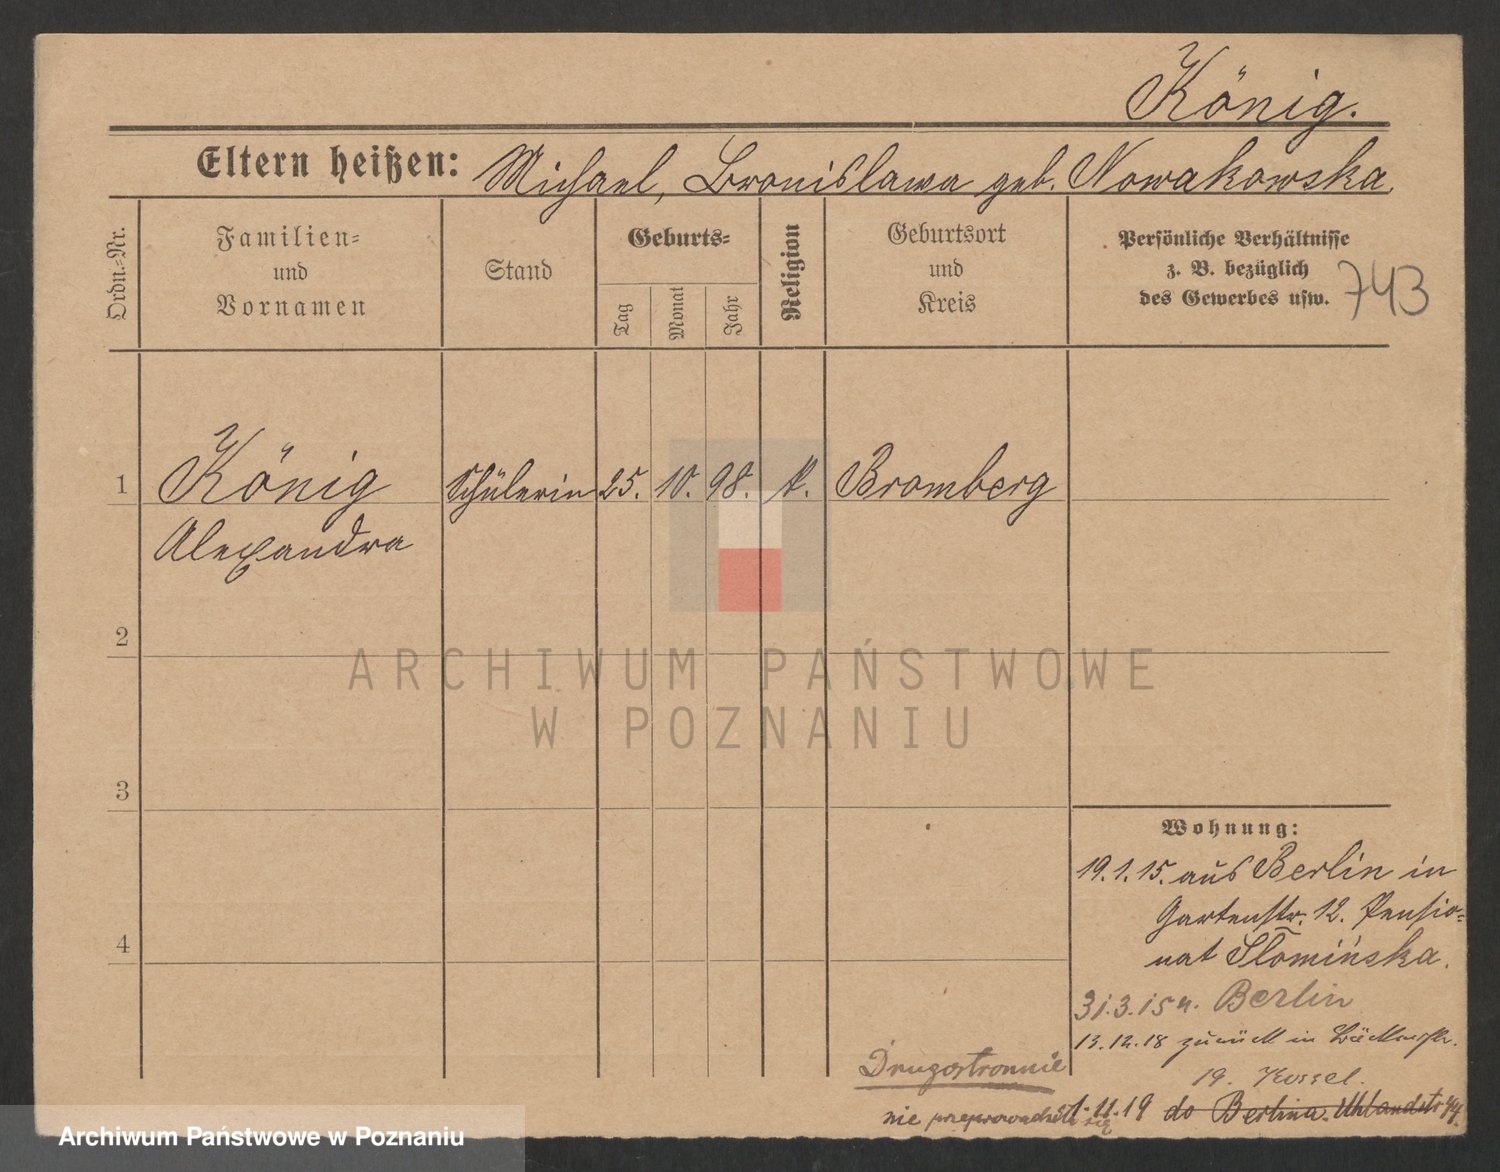 König.
Eltern heißen: Michael, Bronislawa geb. Nowakowska
Ordn.-Nr.
Familien-
und
Vornamen
Stand
Geburts-
Tag
Monat
Jahr
Religion
Geburtsort
und
Kreis
Persönliche Verhältnisse
z. B. bezüglich
des Gewerbes usw.
743
1 König Schülerin 25. 10. 98. k. Bromberg
Alexandra
2
3
4
ARCHIWUM PAŃSTWOWE
W POZNANIU
Wohnung:
19.1.15. aus Berlin in
Gartenstr. 12. Pensio-
nat Słomińska.
31.3.15 n. Berlin
13.12.18 zurück in
19.
Drugostronnie
nie 1.11.19 do Berlina. Uhlandstr 44.
Archiwum Państwowe w Poznaniu